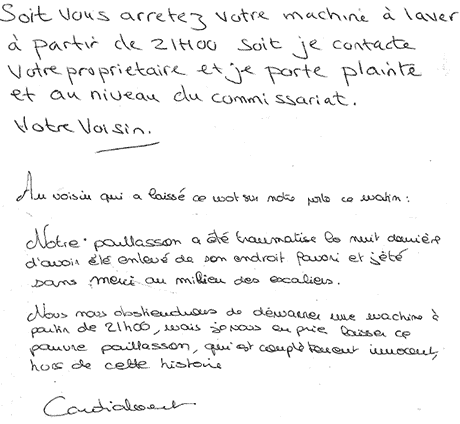 Soit vous arretez votre machine à laver
à partir de 21H00 soit je contacte
votre proprietaire et je porte plainte
et au niveau du commissariat.
Votre Voisin.
Au voisin qui a laissé ce mot sur notre porte ce matin :
Notre paillasson a été traumatisé la nuit dernière
d'avoir été enlevé de son endroit favori et jeté
sans merci au milieu des escaliers.
Nous nous abstiendrons de démarrer une machine à
partir de 21h00, mais je vous en prie laisser ce
pauvre paillasson, qui est complètement innocent,
hors de cette histoire
Cordialement